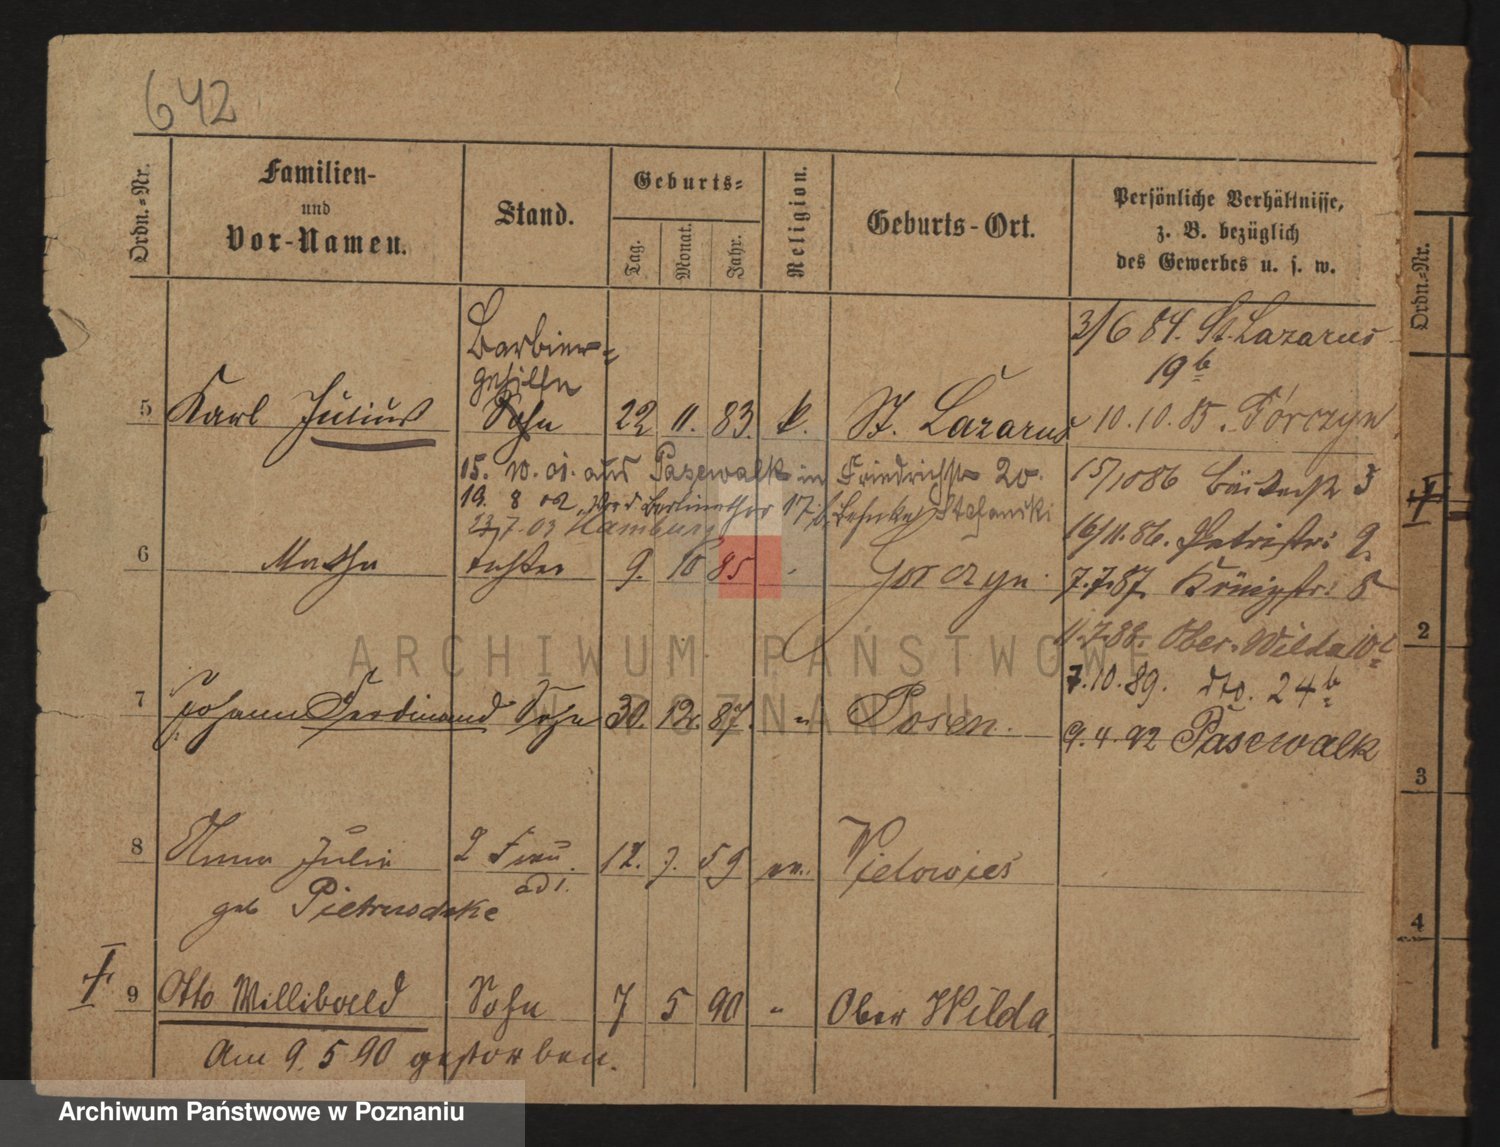 642
Ordn.-Nr.
Familien-
und
Vor-Namen.
Stand.
Geburts-
Tag.
Monat.
Jahr.
Religion.
Geburts-Ort.
Persönliche Verhältnisse,
z. B. bezüglich
des Gewerbes u. s. w.
Barbier-
gehilfe
5 Karl Julius Sohn 22 11. 83. k. St. Lazarus
3/6 84. St. Lazarus
19b
10.10.85. Górczyn
15. 10. 01. aus Pasewalk in Friedrichstr 20.
19. 8 02 17
7.03 Hamburg
15/10 86 3
6 tochter 9. 10 85 Gorczyn.
16/11.86. Petristr: 9.
7.7.87. Königstr: 8
11.7.88. Ober-Wilda 10
7 Johann Ferdinand Sohn 30. 12. 87. " Posen.
7.10.89. dto. 24b
9.4.92 Pasewalk
8 Anna Julie 2 Frau 12. 7. 59 ev.
geb
9 Otto Willibald Sohn 7 5 90 " Ober Wilda
Am 9.5.90 gestorben.
Ordn.-Nr.
2
3
4
ARCHIWUM PAŃSTWOWE
W POZNANIU
Archiwum Państwowe w Poznaniu